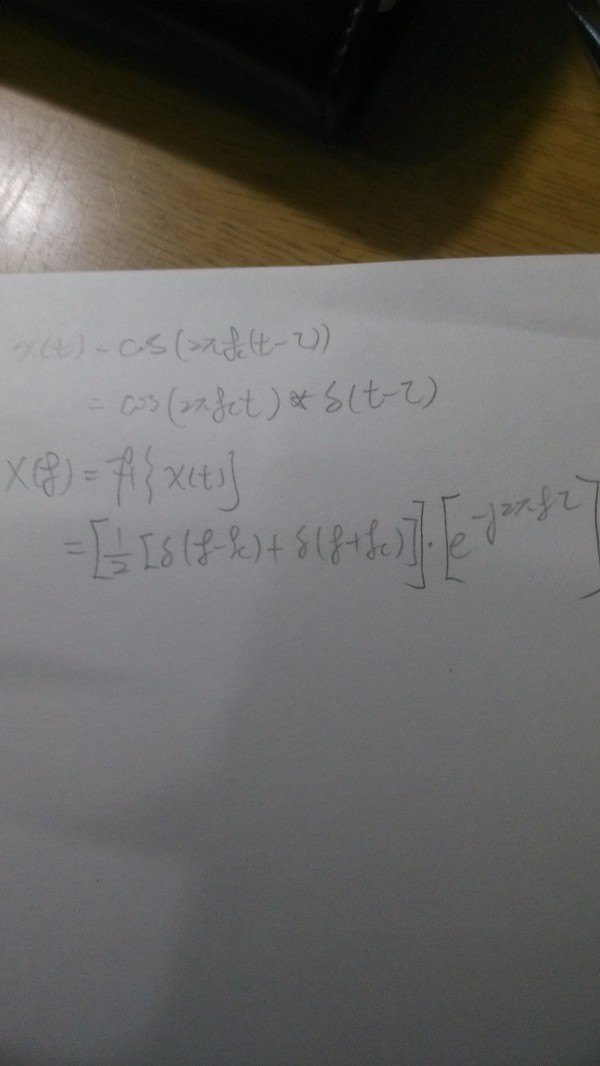 x(t) = cos(2πfc(t-τ))
= cos(2πfct) * δ(t-τ)
X(f) = F{x(t)}
= [1/2 [δ(f-fc) + δ(f+fc)]]·[e^-j2πfτ]